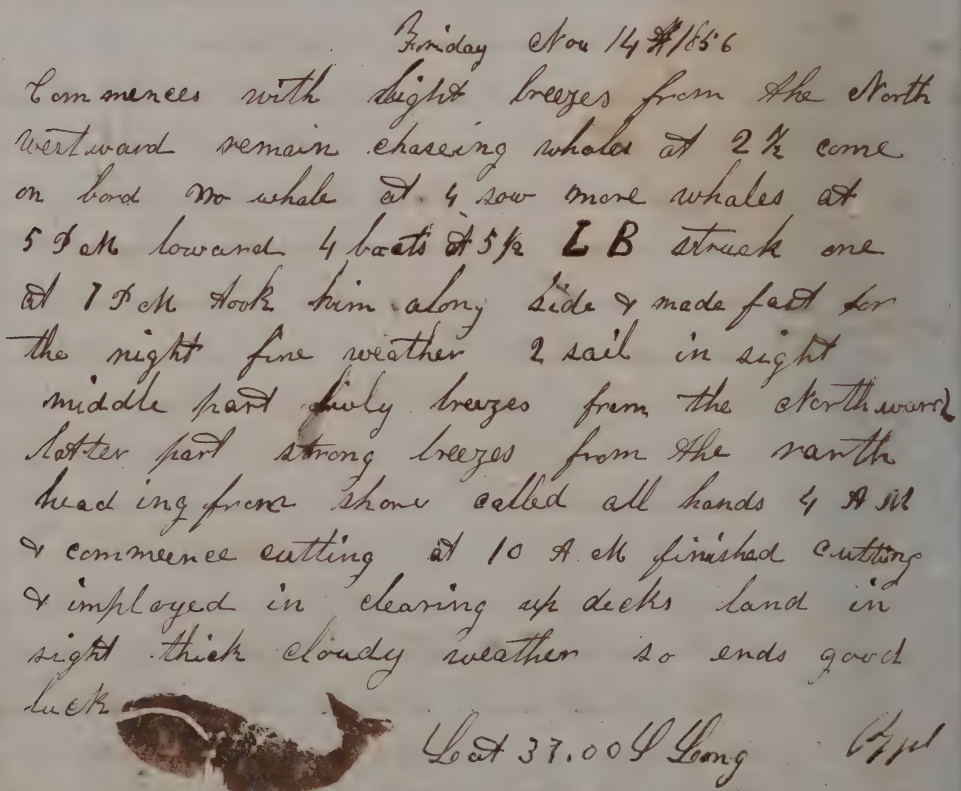 Friday Nov 14th 1856
Commences with light breezes from the North
westward remain chaseing whales at 2 1/2 come
on bord no whale at 4 sow more whales at
5 PM loward 4 boats at 5 1/2 L B struck one
at 7 PM took him along side & made fast for
the night fine weather 2 sail in sight
middle part breezes from the Northward
latter part strong breezes from the narth
heading from shore called all hands 4 AM
& commeence cutting at 10 AM finished cutting
& imployed in clearing up decks land in
sight thick cloudy weather so ends good
luck
Lat 37.00 S Long